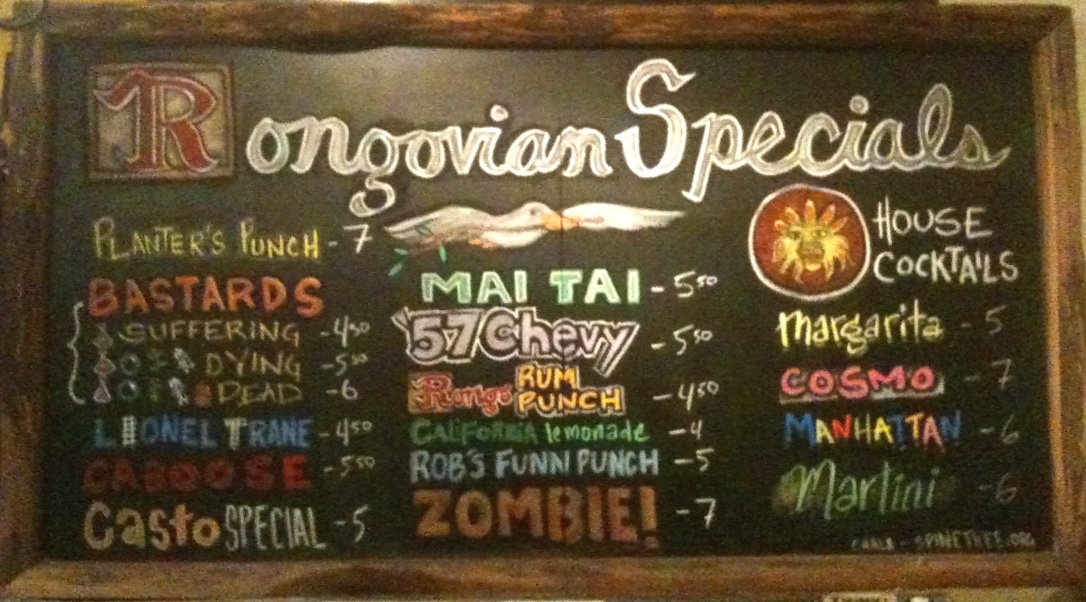 Rongovian Specials
PLANTER'S PUNCH - 7
BASTARDS
SUFFERING - 450
DYING - 550
DEAD - 6
LIONEL TRANE - 450
CABOOSE - 550
Casto SPECIAL - 5
MAI TAI - 550
'57 Chevy - 550
Rongo RUM PUNCH - 450
CALIFORNIA lemonade - 4
ROB'S FUNN PUNCH - 5
ZOMBIE! - 7
HOUSE
COCKTAILS
Margarita - 5
COSMO - 7
MANHATTAN - 6
Martini - 6
CHALK - SPINETREE.ORG